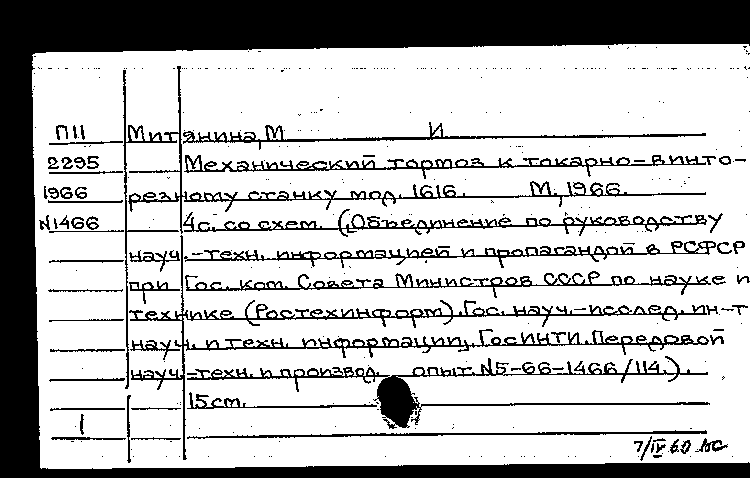 П11 Митянина, М И
2295 Механический тормоз к токарно-винто-
1966 резному станку мод. 1616. М., 1966.
N1466 4с. со схем. (Объединение по руководству
науч.-техн. информацией и пропагандой в РСФСР
при Гос. ком. Совета Министров СССР по науке и
технике (Ростехинформ). Гос. науч.-исслед. ин-т
науч. и техн. информации. ГосИНТИ. Передовой
науч.-техн. и производ. опыт. N5-66-1466/114.).
15см.
1
7/IV 60